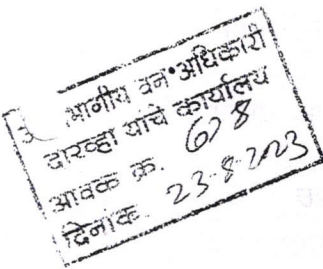 वन अधिकारी
दारव्हा यांचे कार्यालय
आवक क्र. 678
दिनांक 23-8-2023